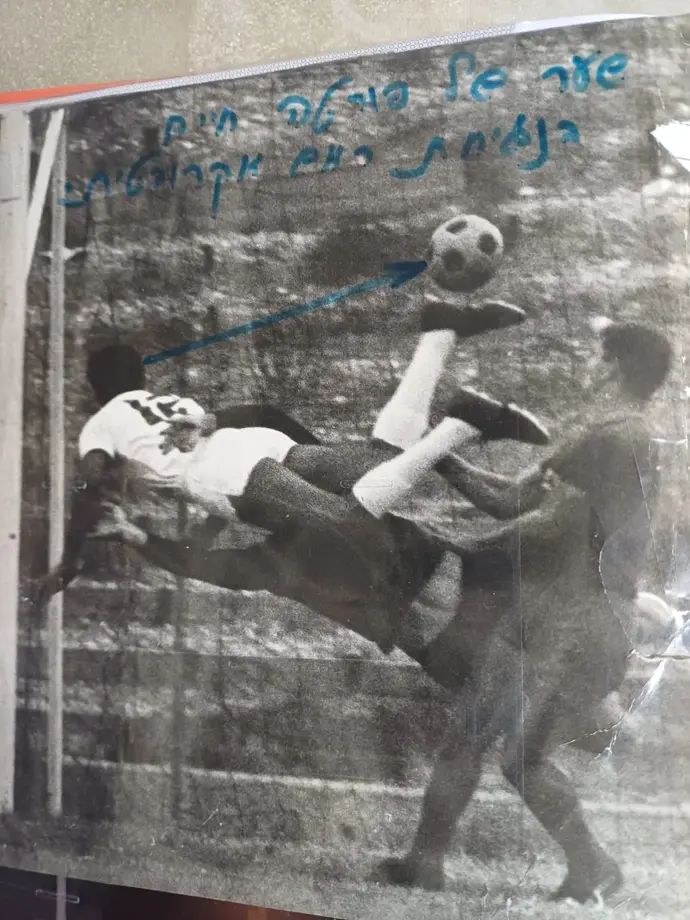 שער של פורטה חיים
בנגיחת ראש אקרובטית.